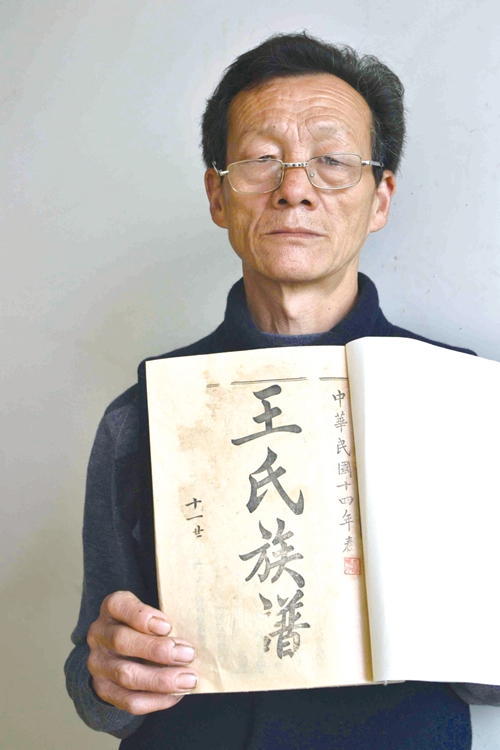 中華民國十四年
王氏族譜
十一